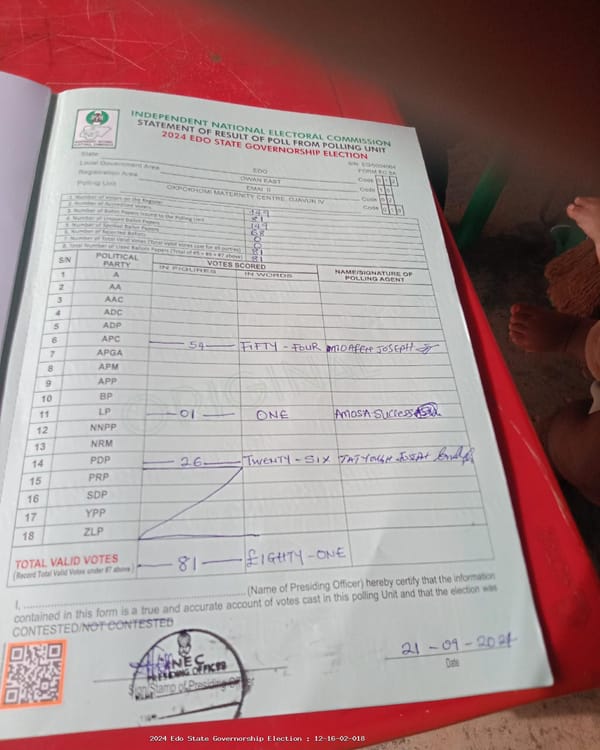 INDEPENDENT NATIONAL ELECTORAL COMMISSION
STATEMENT OF RESULT OF POLL FROM POLLING UNIT
2024 EDO STATE GOVERNORSHIP ELECTION
FORM EC 8A
State EDO Code 1 2
Local Government Area OWAN EAST Code 1
Registration Area EMAI II Code 0 2
Polling Unit OKPOKHUMI MATERNITY CENTRE, OJAVUN IV Code 0 1
1. Number of Voters on the Register 149
2. Number of Accredited Voters 81
3. Number of Ballot Papers Issued to the Polling Unit 149
4. Number of Unused Ballot Papers 68
5. Number of Spoiled Ballot Papers 0
6. Number of Rejected Ballots 0
7. Number of Total Valid Votes (Total valid votes cast for all parties) 81
8. Total Number of Used Ballot Papers (Total of #5 + #6 + #7 above) 81
S/N POLITICAL PARTY VOTES SCORED NAME/SIGNATURE OF POLLING AGENT
IN FIGURES IN WORDS
1 A
2 AA
3 AAC
4 ADC
5 ADP
6 APC 54 FIFTY-FOUR JOSEPH
7 APGA
8 APM
9 APP
10 BP
11 LP 01 ONE AMOSA SUCCESS
12 NNPP
13 NRM
14 PDP 26 TWENTY-SIX
15 PRP
16 SDP
17 YPP
18 ZLP
TOTAL VALID VOTES 81 EIGHTY-ONE
(Record Total Valid Votes under #7 above)
I, (Name of Presiding Officer) hereby certify that the information
contained in this form is a true and accurate account of votes cast in this polling Unit and that the election was
CONTESTED/NOT CONTESTED
INEC
PRESIDING OFFICER
Sign/Stamp of Presiding Officer
21-09-2024
Date
2024 Edo State Governorship Election : 12-16-02-018